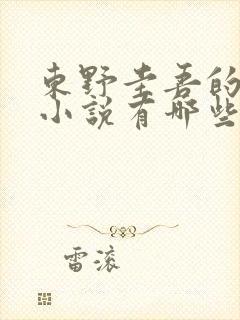 東野圭吾的
小說有哪些
雷滚